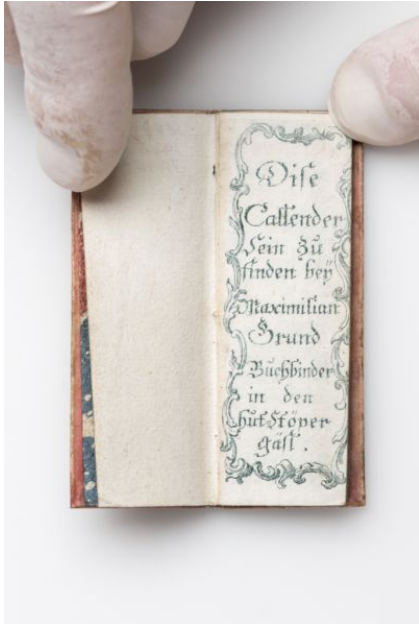 Dise
Callender
sein zu
finden beÿ
Maximilian
Grund
Buchbinder
in den
hutStöper
gässl.